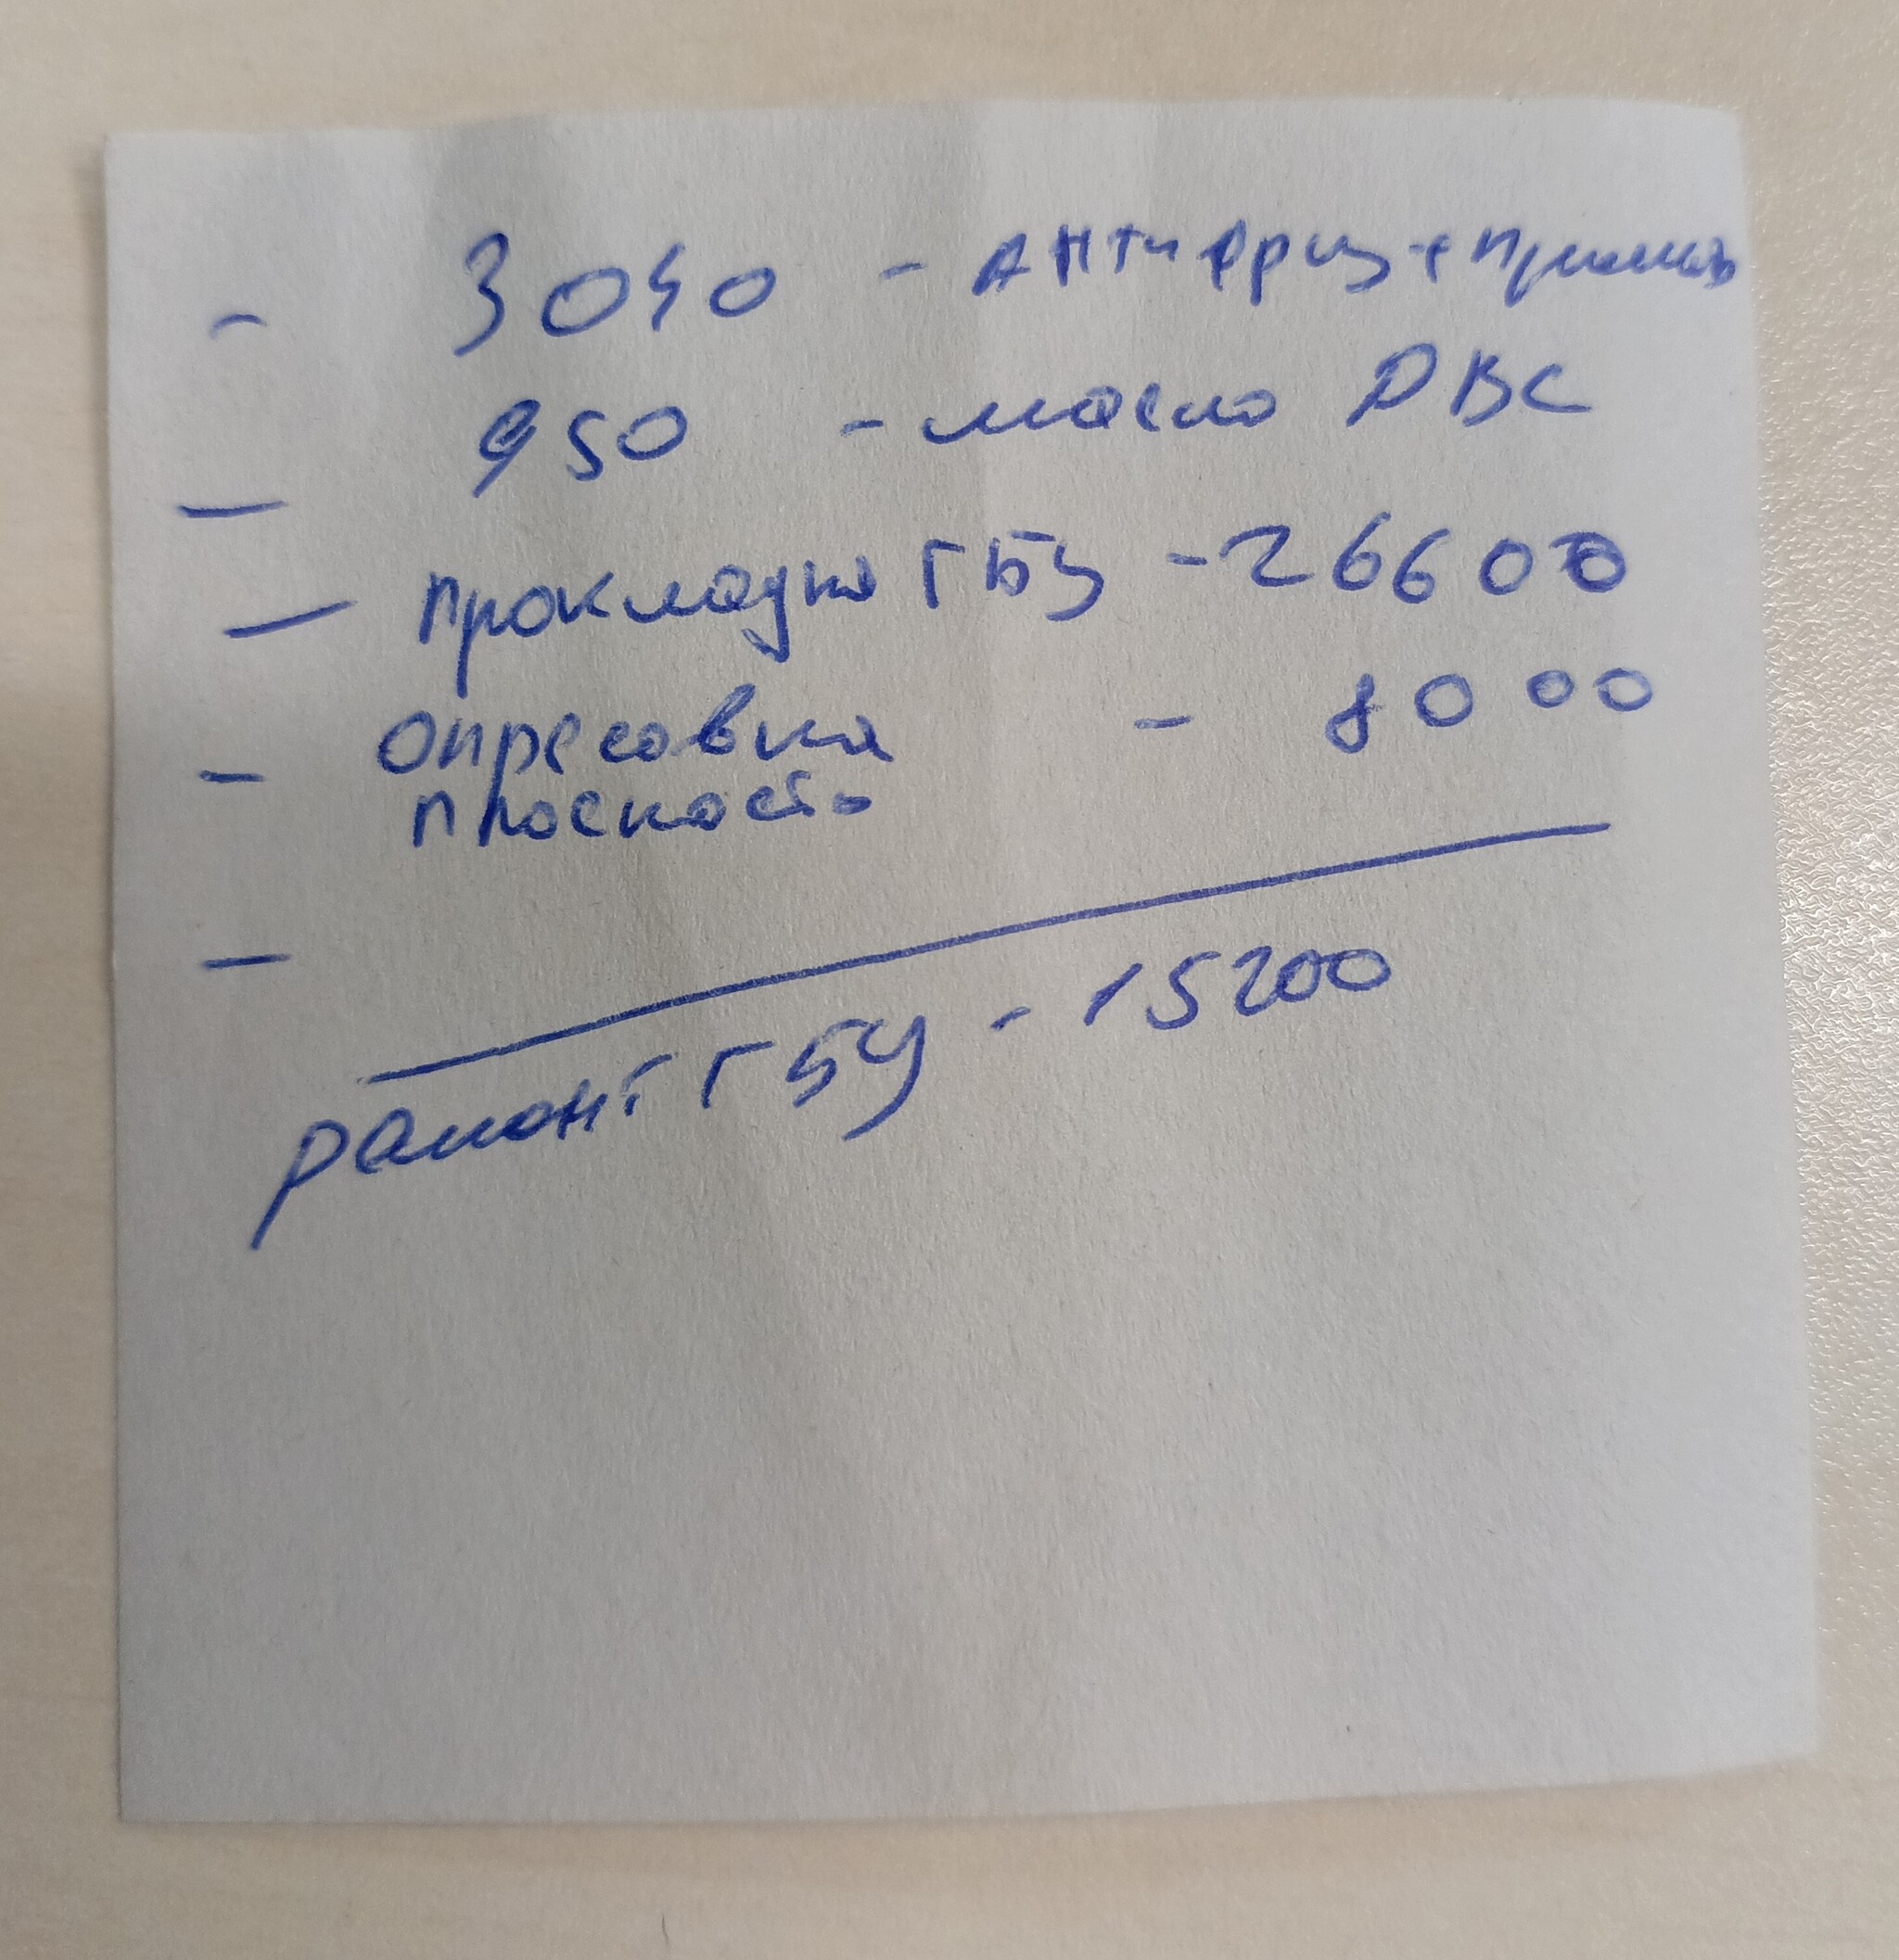 - 3040 - Антифриз + прокладь
- 950 - масло ДВС
- прокладка ГБЦ - 26600
- опресовка - 8000
плоскость
-
ремонт ГБЦ - 15200